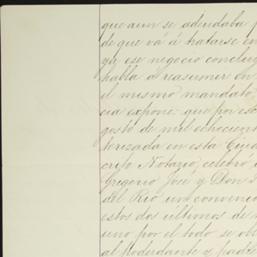 que aun se adeudaba
de que vá á tratarse en
ya ese negocio conclu
habla á reasumir en
el mismo mandato
cia expone: que por es
gosto de mil ochocien
torizada en esta Ciud
crito Notario, celebró
Gregorio José y Don
del Rio un convenio
estos dos últimos de
uno por el todo se ob
al Poderdante y